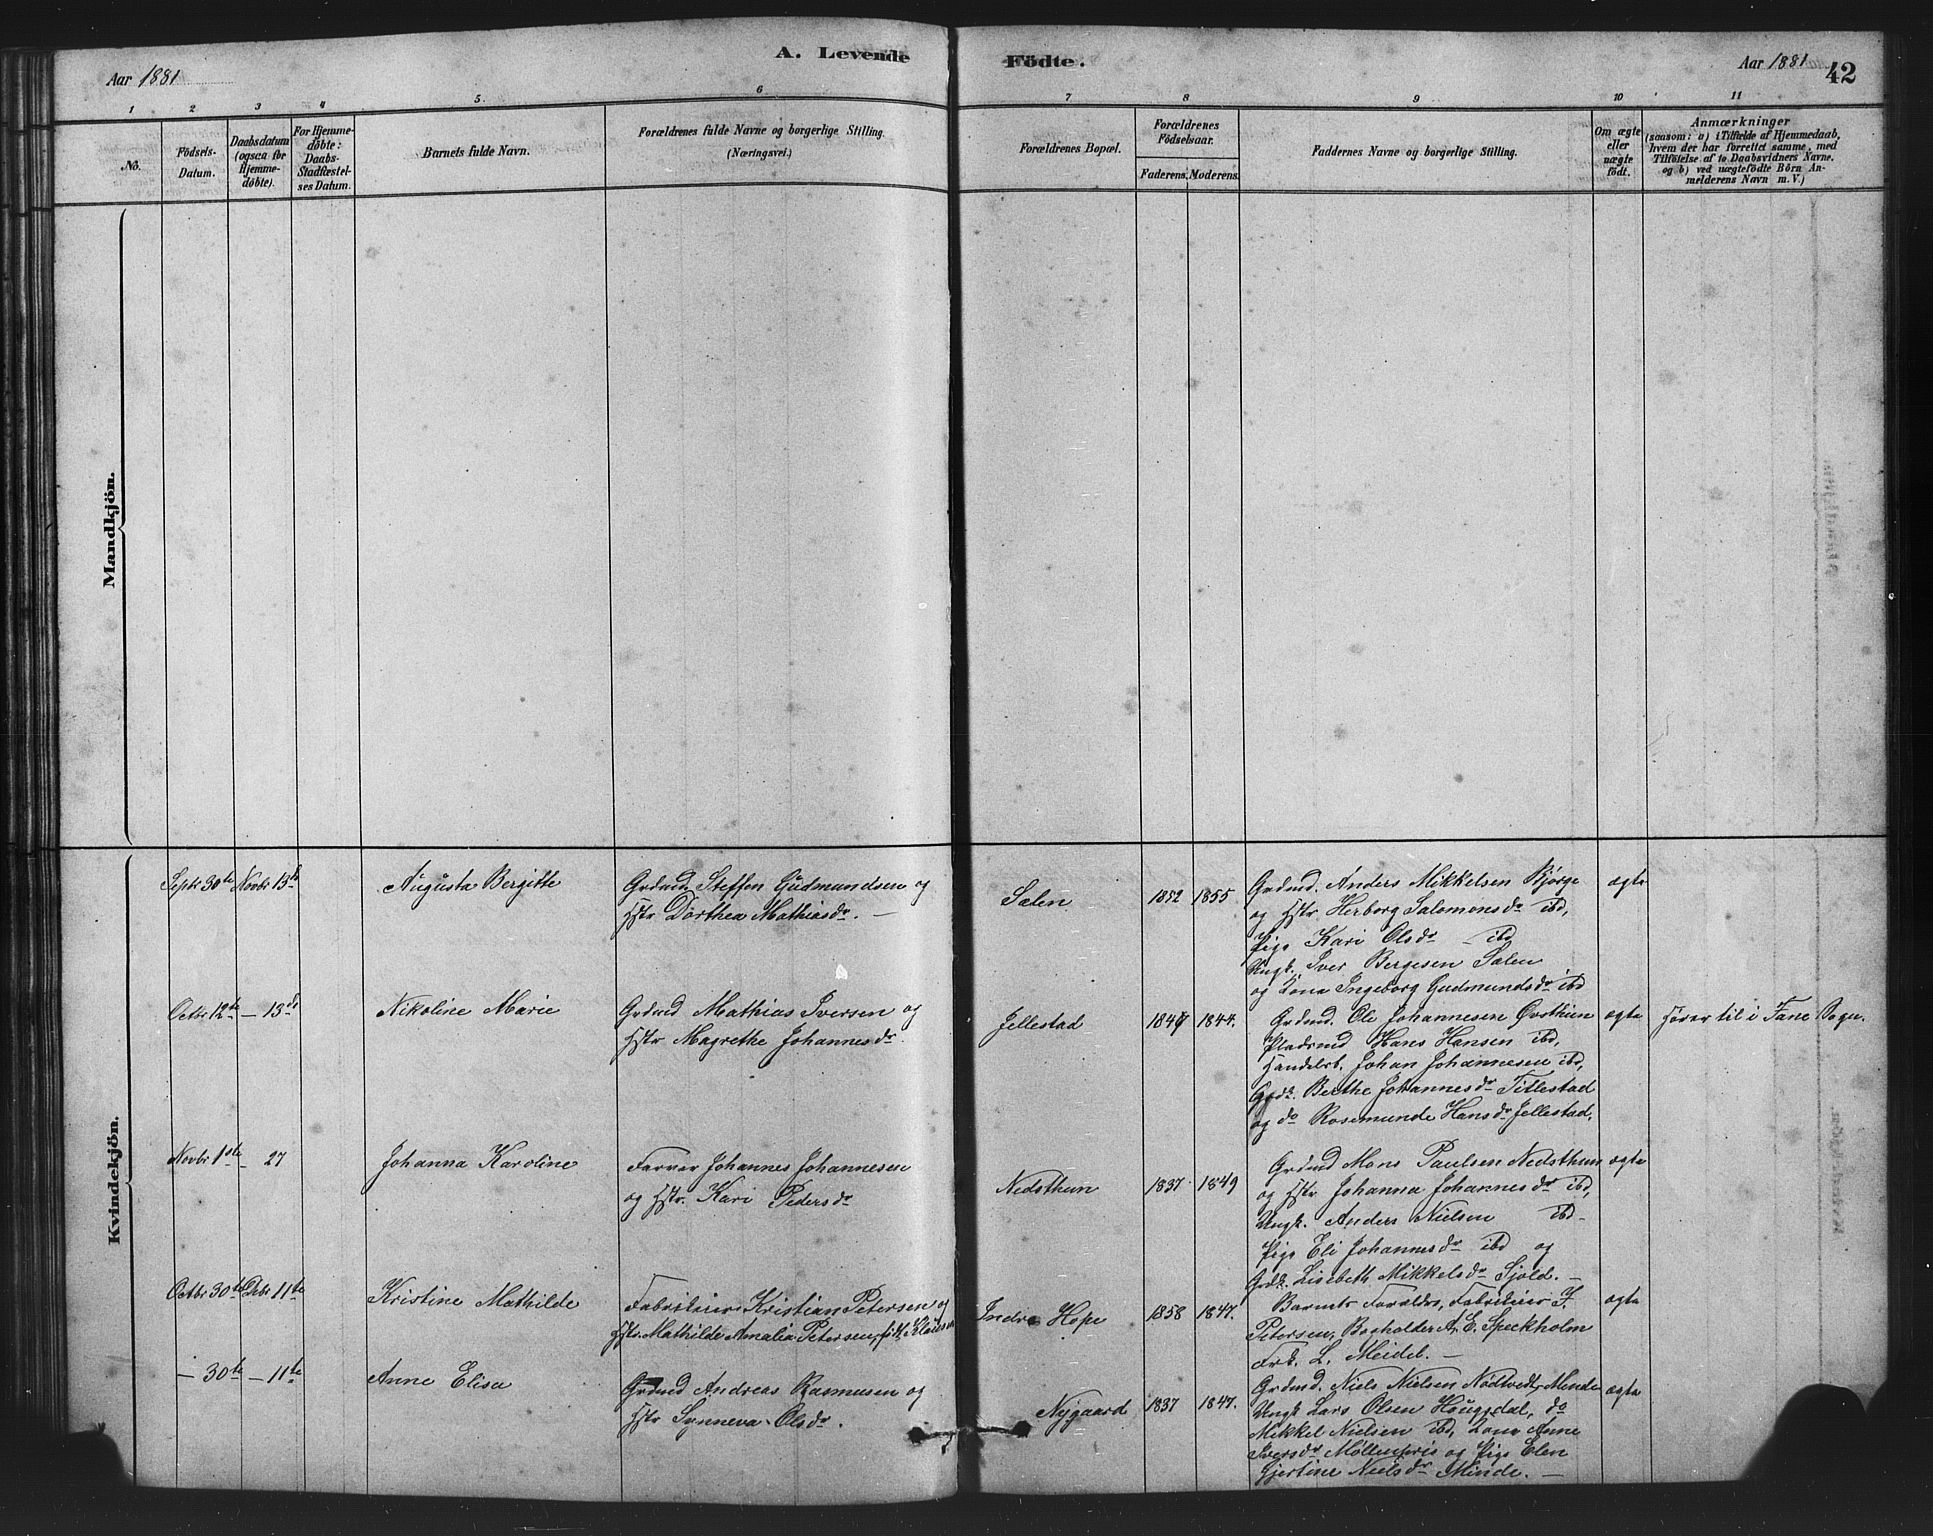 A. Levende Födte.
Aar 1881
Aar 1881
42
1 2 3 4 5. 6 7 8 9 10 11
No.
Födsels-Datum.
Daabsdatum (ogsaa for Hjemme-döbte).
For Hjemme-döbte: Daabs-Stadfæstel-ses Datum.
Barnets fulde Navn.
Forældrenes fulde Navne og borgerlige Stilling. (Næringsvei.)
Forældrenes Bopæl.
Forældrenes Födselsaar.
Faderens. Moderens.
Faddernes Navne og borgerlige Stilling.
Om ægte eller uægte födt.
Anmærkninger
(saasom: a) i Tilfælde af Hjemmedaab, hvem der har forrettet samme, med Tilföielse af to Daabsvidners Navne. og b) ved uægtefödte Börn An-melderens Navn m. V.)
Mandkjön.
Kvindekjön.
Septr 30te Novbr 13de
Augusta Bergitte
Grdmd Steffen Gudmundsen og
Hstr Dorthea Mathiasdr. —
Sælen
1852 1855
Grdmd. Anders Mikkelsen Bjørge
og Hstr Herborg Salomonsdr ibd,
Pige Kari Olsdr — ibd
Ungk. Iver Børgesen Sælen
og Kone Ingeborg Gudmundsdr ibd
ægte
Octbr 12te — 13de
Nikoline Marie
Grdmd Mathias Iversen og
Hstr Magrethe Johannesdr.
Jellestad
1844.
Grdmd. Ole Johannesen Øvsthun
Pladsmd Hans Hansen ibd,
Handelsb. Johan Johannesen ibd,
Grdk. Berthe Johannesdr Titlestad
og do Rosemunde Hansdr Jellestad.
ægte
Hører til i Fane Sogn.
Novbr 1ste — 27
Johanna Karoline
Farver Johannes Johannesen
og Hstr. Kari Pedersdr
Nedsthun
1837 1849
Grdmd Mons Paulsen Nedsthun
og Hstr Johanna Johannesdr ibd,
Ungk. Anders Nielsen ibd —
Pige Eli Johannesdr ibd og
Grdk. Lisebeth Mikkelsdr Sjold. —
ægte
Octbr 30te Dcbr 11te
Kristine Mathilde
Fabrikeier Kristian Petersen og
Hstr. Mathilde Amalia Petersen, født
Indre Hope
1858 1847.
Barnets Forældre, Fabrikeier J.
Petersen, Bogholder A. E. Speckholm
Frk. L. Meidel. —
ægte
— 30te — 11te
Anne Elisa
Grdmd Andreas Rasmusen og
Hstr Synneva Olsdr.
Nygaard
1837 1847.
Grdmd. Niels Nielsen Nødtvedt, Minde
Ungk Lars Olsen Haugsdal, do
Mikkel Nielsen ibd, Kone Anne
Iversdr Møllenpris og Pige Elen
Gjertine Nielsdr Minde. —
ægte